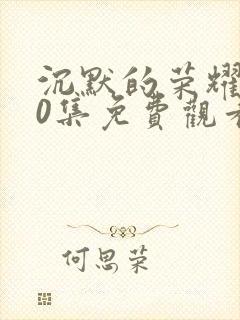 沉默的荣耀
0集免費觀看
何思荣